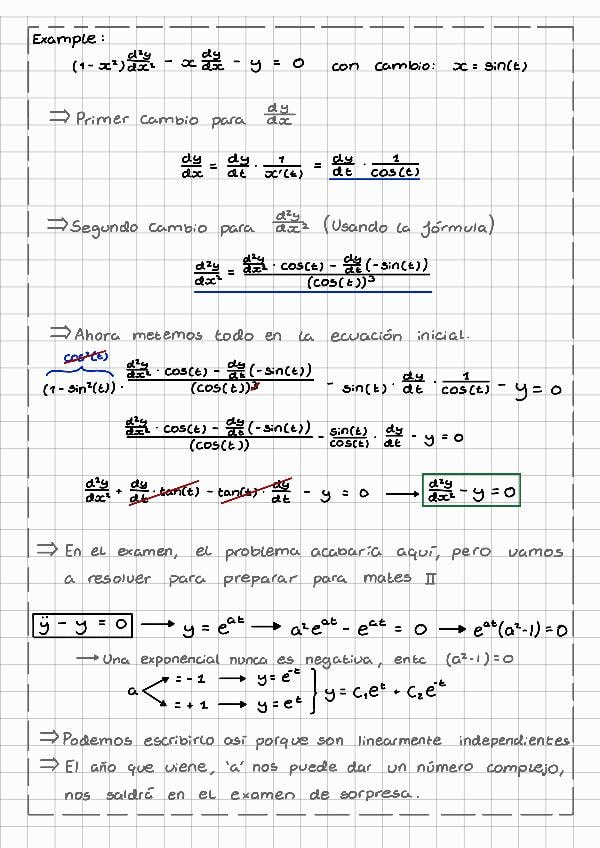 Example:
(1-x²) d²y/dx² - x dy/dx - y = 0 con cambio: x = sin(t)
⇒ Primer cambio para dy/dx
dy/dx = dy/dt · 1/x'(t) = dy/dt · 1/cos(t)
⇒ Segundo cambio para d²y/dx² (Usando la fórmula)
d²y/dx² = (d²y/dx² · cos(t) - dy/dt (-sin(t)))/(cos(t))³
⇒ Ahora metemos todo en la ecuación inicial.
cos²(t)
(1-sin²(t)) · (d²y/dx² · cos(t) - dy/dt (-sin(t)))/(cos(t))³ - sin(t) · dy/dt · 1/cos(t) - y = 0
(d²y/dx² · cos(t) - dy/dt (-sin(t)))/(cos(t)) - sin(t)/cos(t) · dy/dt - y = 0
d²y/dx² + dy/dt · tan(t) - tan(t) · dy/dt - y = 0 → d²y/dx² - y = 0
⇒ En el examen, el problema acabaría aquí, pero vamos
a resolver para preparar para mates II
ÿ - y = 0 → y = eᵃᵗ → a²eᵃᵗ - eᵃᵗ = 0 → eᵃᵗ(a²-1) = 0
→ Una exponencial nunca es negativa, entc (a²-1) = 0
a = -1 → y = e⁻ᵗ
= +1 → y = eᵗ } y = C₁eᵗ + C₂e⁻ᵗ
⇒ Podemos escribirlo así porque son linearmente independientes
⇒ El año que viene, 'a' nos puede dar un número complejo,
nos saldrá en el examen de sorpresa.